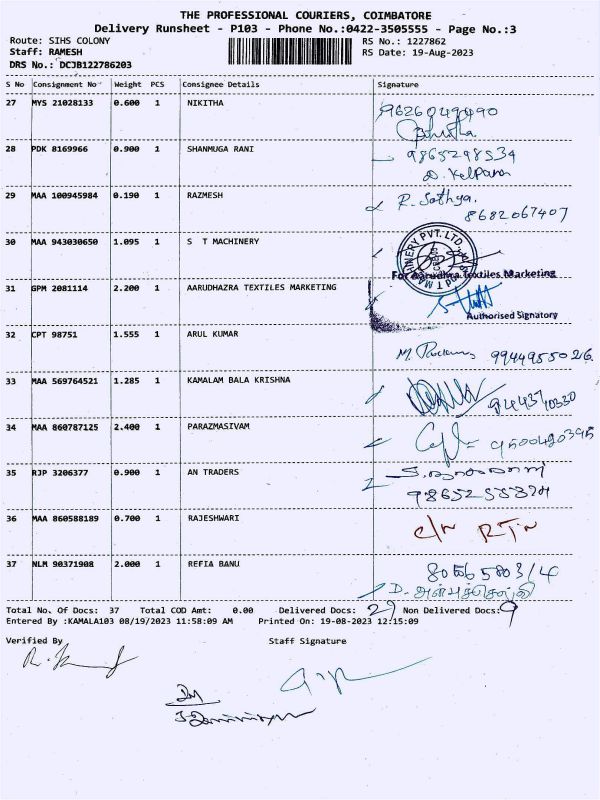 THE PROFESSIONAL COURIERS, COIMBATORE
Delivery Runsheet - P103 - Phone No.:0422-3505555 - Page No.:3
Route: SIHS COLONY RS No.: 1227862
Staff: RAMESH RS Date: 19-Aug-2023
DRS No.: DCJB122786203
S No Consignment No Weight PCS Consignee Details Signature
27 MYS 21028133 0.600 1 NIKITHA
28 PDK 8169966 0.900 1 SHANMUGA RANI
9865298534
29 MAA 100945984 0.190 1 RAZMESH R. Sathya.
8682067407
30 MAA 943030650 1.095 1 S T MACHINERY
For Aarudhra Textiles Marketing
31 GPM 2081114 2.200 1 AARUDHAZRA TEXTILES MARKETING
Authorised Signatory
32 CPT 98751 1.555 1 ARUL KUMAR
9944955026
33 MAA 569764521 1.285 1 KAMALAM BALA KRISHNA
34 MAA 860787125 2.400 1 PARAZMASIVAM
35 RJP 3206377 0.900 1 AN TRADERS
36 MAA 860588189 0.700 1 RAJESHWARI
37 NLM 90371908 2.000 1 REFIA BANU
Total No. Of Docs: 37 Total COD Amt: 0.00 Delivered Docs: 29 Non Delivered Docs: 9
Entered By :KAMALA103 08/19/2023 11:58:09 AM Printed On: 19-08-2023 12:15:09
Verified By Staff Signature